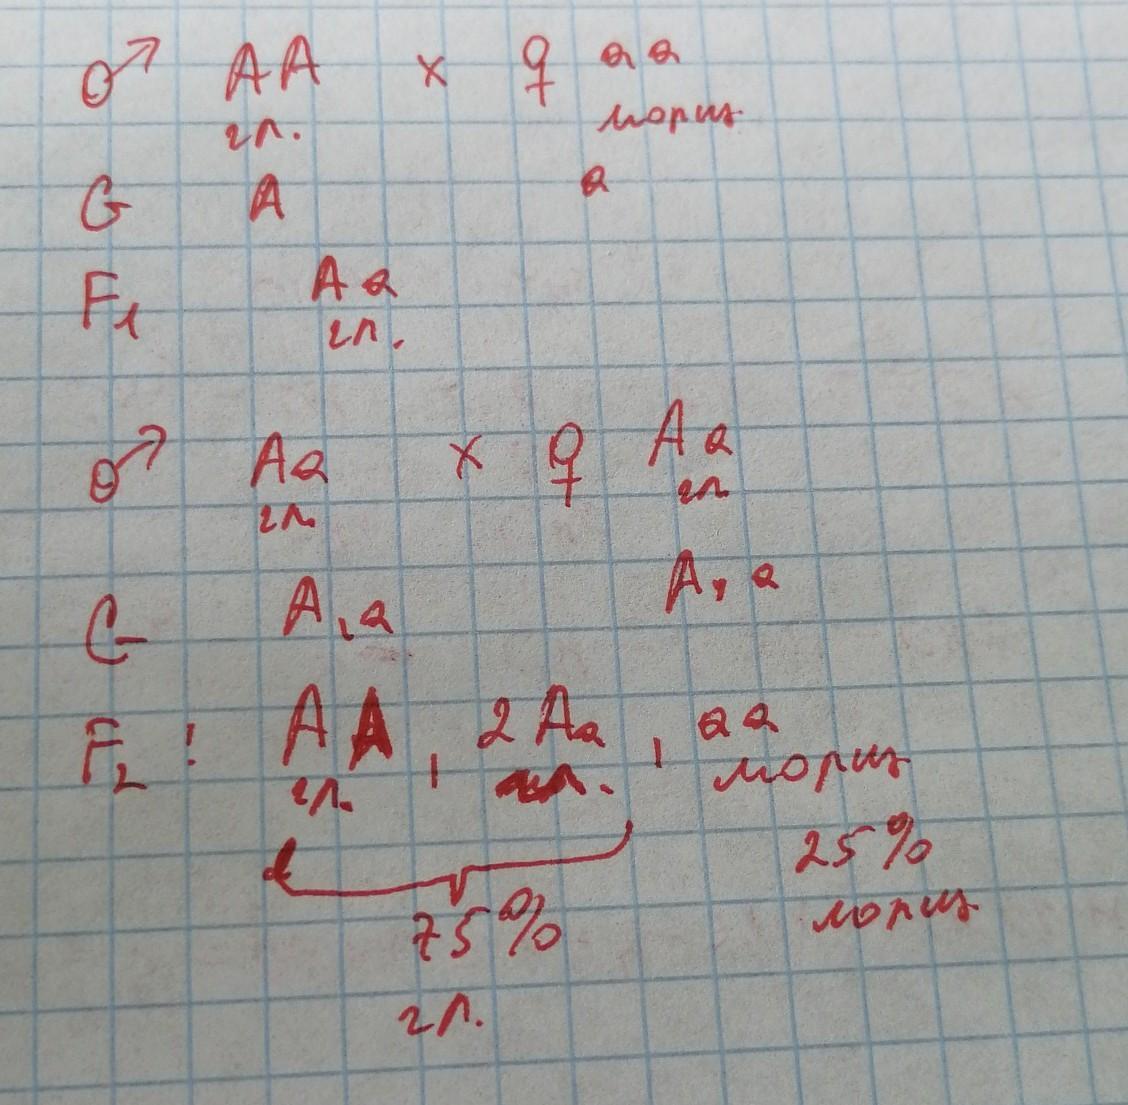 ♂ AA × ♀ aa
гл. морщ
G A a
F1 Aa
гл.
♂ Aa × ♀ Aa
гл. гл
G A, a A, a
F2: AA, 2Aa, aa
гл. гл. морщ
25%
морщ
75%
гл.